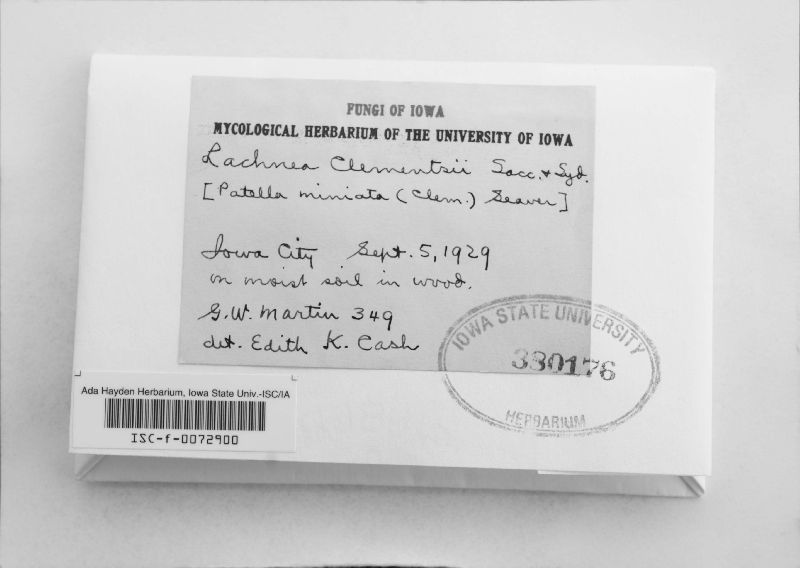 FUNGI OF IOWA
MYCOLOGICAL HERBARIUM OF THE UNIVERSITY OF IOWA
Lachnea Clementsii Sacc. & Syd.
[Patella miniata (Clem.) Seaver]
Iowa City Sept. 5, 1929
on moist soil in wood.
G.W. Martin 349
det. Edith K. Cash
IOWA STATE UNIVERSITY
330176
HERBARIUM
Ada Hayden Herbarium, Iowa State Univ.-ISC/IA
ISC-f-0072900